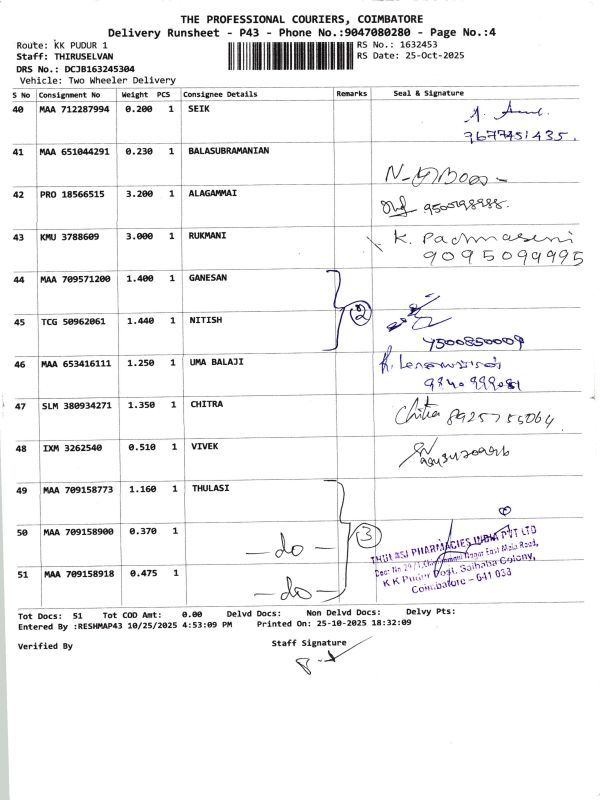 THE PROFESSIONAL COURIERS, COIMBATORE
Delivery Runsheet - P43 - Phone No.:9047080280 - Page No.:4
Route: KK PUDUR 1
RS No.: 1632453
Staff: THIRUSELVAN
RS Date: 25-Oct-2025
DRS No.: DCJB163245304
Vehicle: Two Wheeler Delivery
S No Consignment No Weight PCS Consignee Details Remarks Seal & Signature
40 MAA 712287994 0.200 1 SEIK
9677451435.
41 MAA 651044291 0.230 1 BALASUBRAMANIAN
42 PRO 18566515 3.200 1 ALAGAMMAI
43 KMU 3788609 3.000 1 RUKMANI K. Padmaseni
9095099995
44 MAA 709571200 1.400 1 GANESAN
2
45 TCG 50962061 1.440 1 NITISH
46 MAA 653416111 1.250 1 UMA BALAJI
47 SLM 380934271 1.350 1 CHITRA Chitra 8925755064
48 IXM 3262540 0.510 1 VIVEK
49 MAA 709158773 1.160 1 THULASI
50 MAA 709158900 0.370 1 -do- 3
THULASI PHARMACIES INDIA PVT LTD
51 MAA 709158918 0.475 1 -do-
K K Pudur Post, Saibaba Colony,
Coimbatore - 641 038
Tot Docs: 51 Tot COD Amt: 0.00 Delvd Docs: Non Delvd Docs: Delvy Pts:
Entered By :RESHMAP43 10/25/2025 4:53:09 PM Printed On: 25-10-2025 18:32:09
Verified By Staff Signature